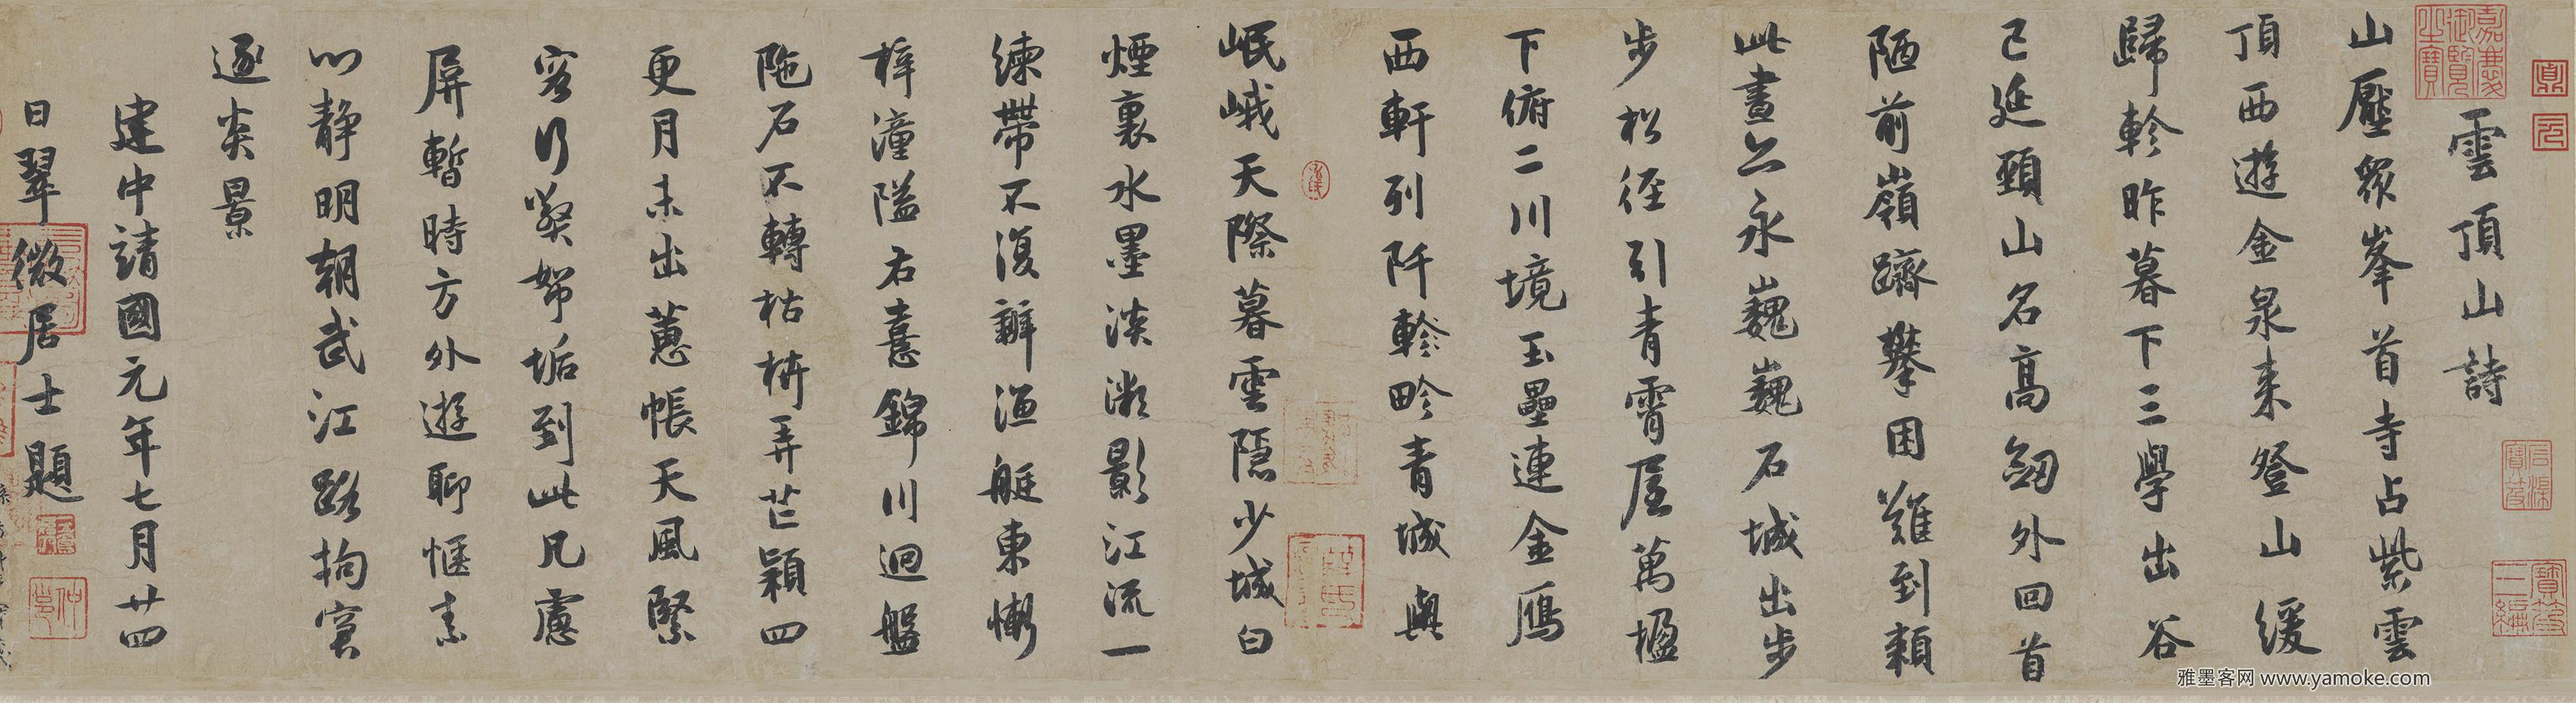 雲頂山詩
山壓衆峯首寺占紫雲
頂西遊金泉來登山緩
歸軫昨暮下三學出谷
已延頸山名高劒外回首
陋前嶺躋攀困難到頼
此晝公永巍巍石城出步
步松徑引青霄屋萬楹
下俯二川境玉壘連金鴈
西軒列阡軫畛青城與
岷峨天際暮雲隱少城白
煙裏水墨淡潄影江流一
練帶不復辧漁艇東慚
梓潼隘右喜錦川迴盤
陁石不轉枯枿弄芒穎四
更月未出蕙帳天風緊
容行發帑垢到此凡慮
屏暫時方外遊聊愜素
心静明朝武江路拘窘
逐炎景
建中靖國元年七月廿四
日翠微居士題
嘉慶御覽之寶
寶笈三編
雅墨客网 www.yamoke.com